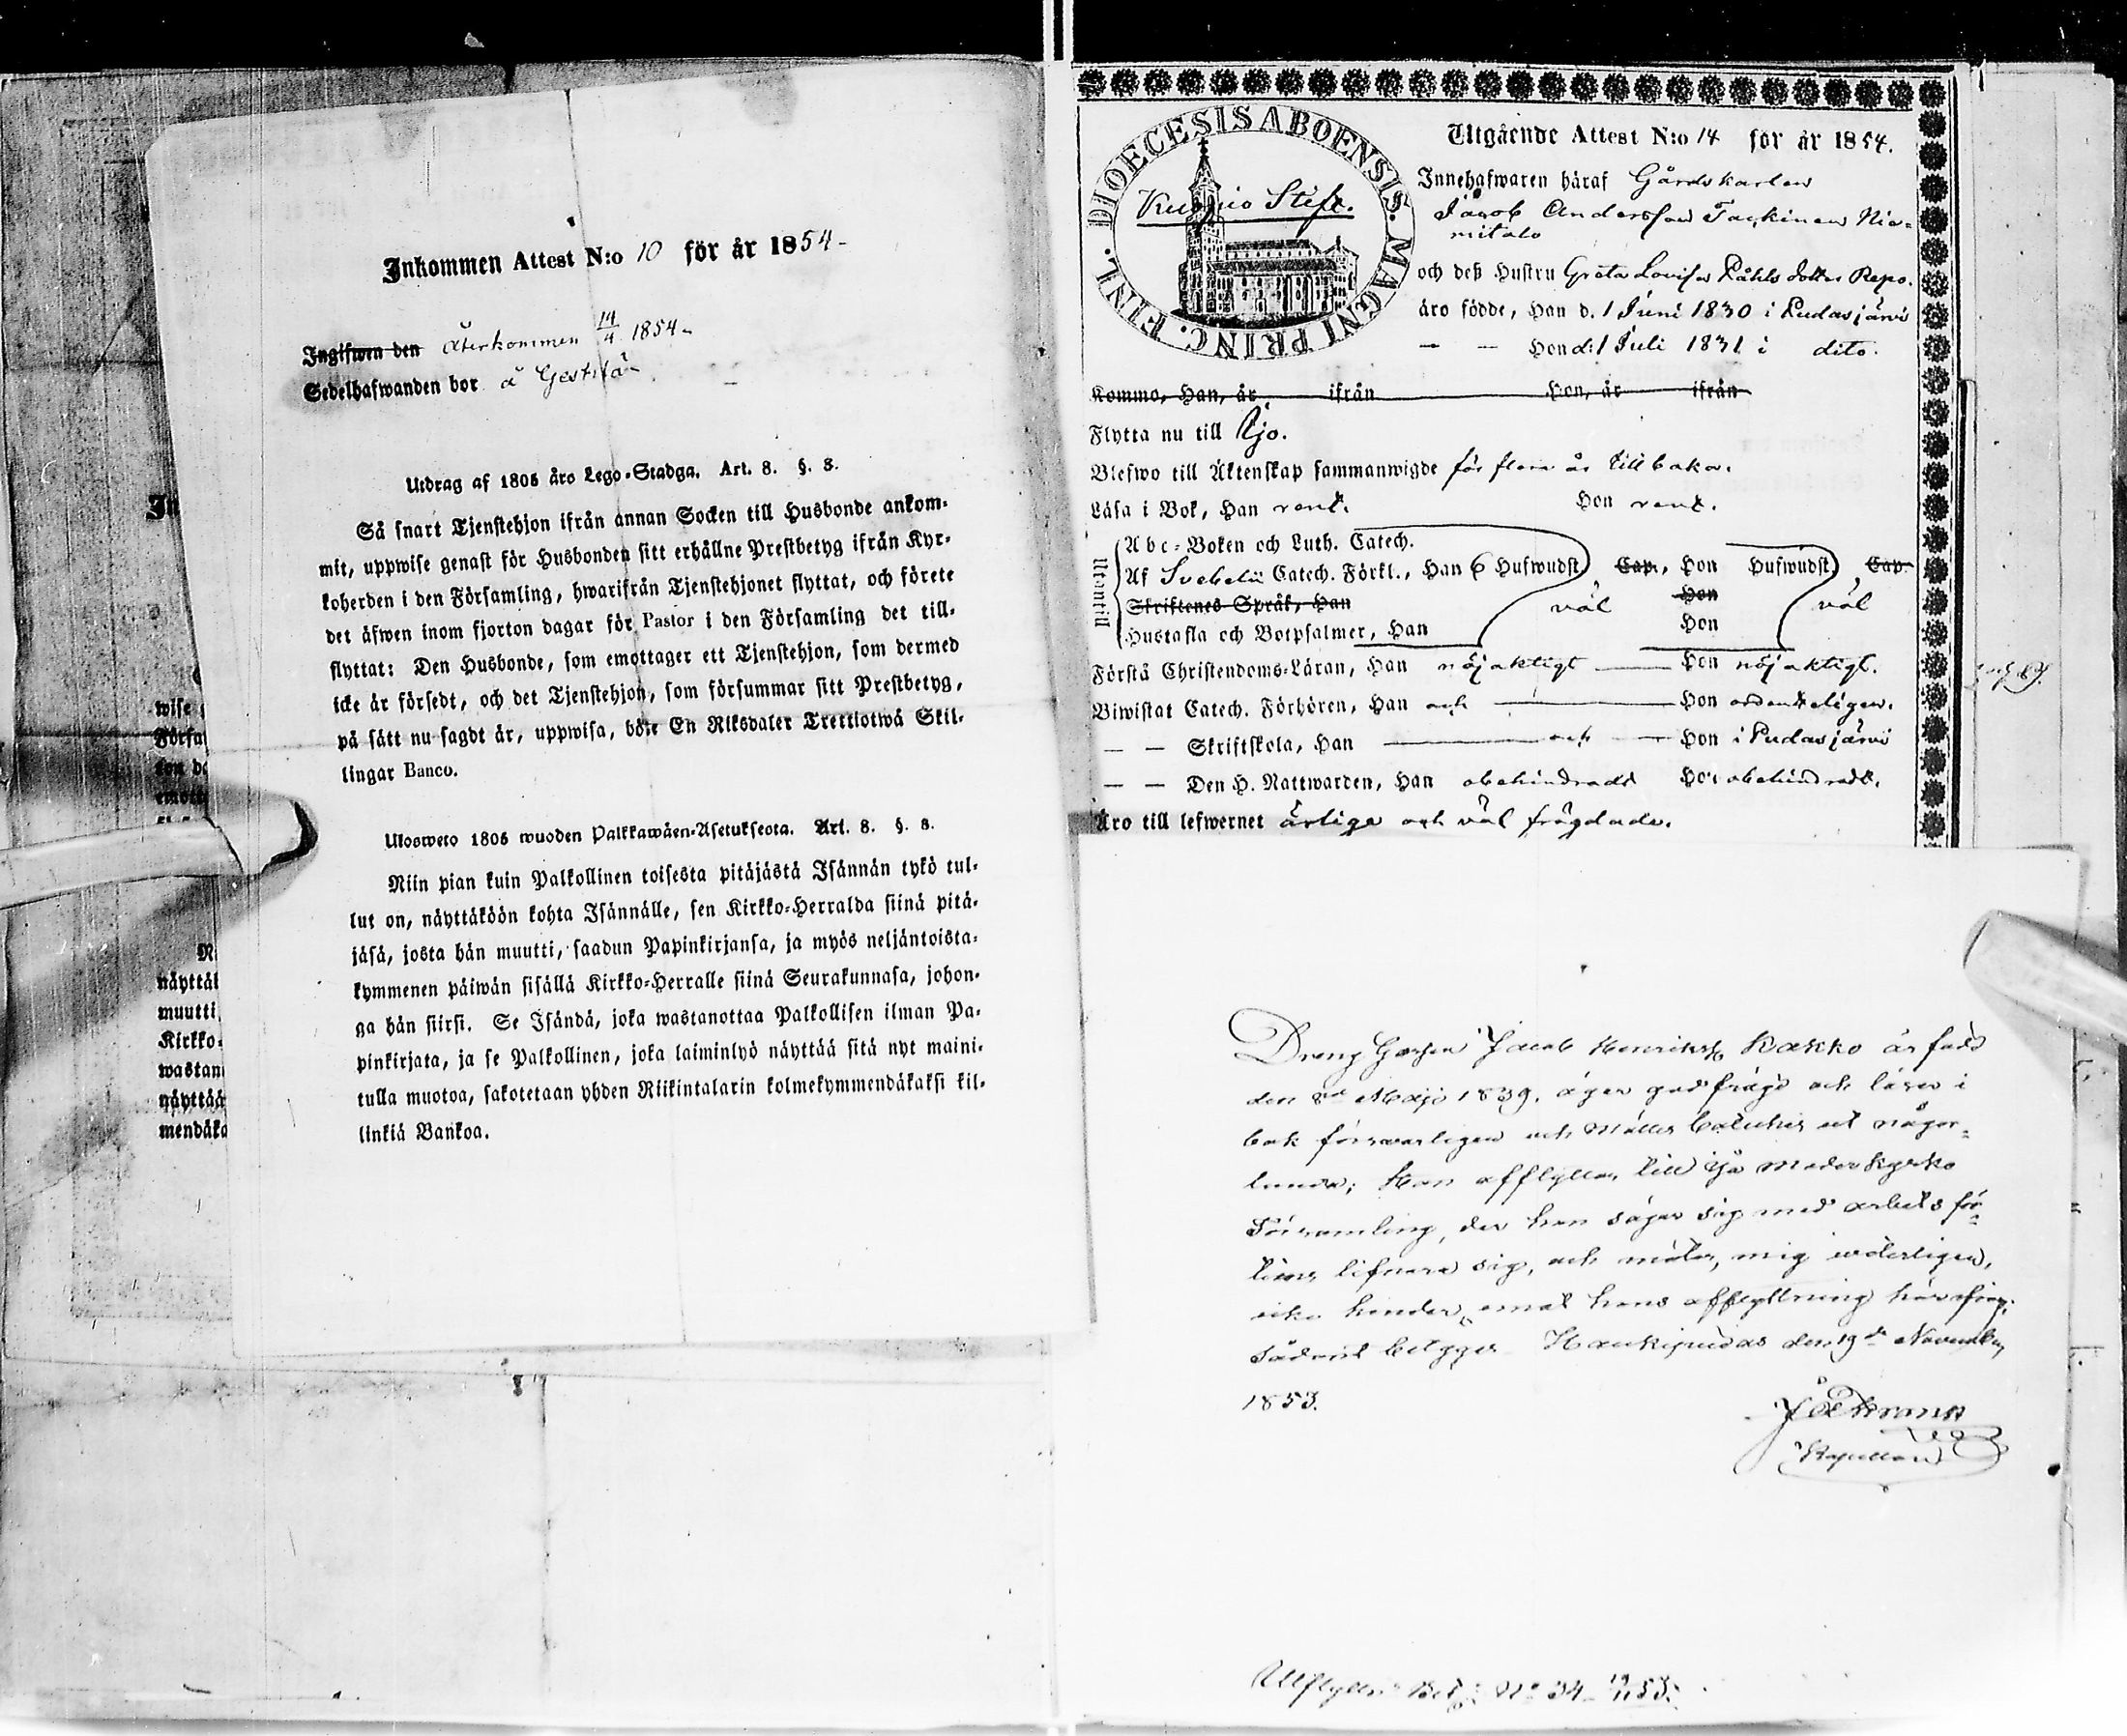 Inkommen Attest N:o 10 för år 1854-
Ingifwen den återkommen 14/4 1854-
Sedelhafwanden bor å
Utdrag af 1805 års Lego-Stadga. Art. 8. §. 8.
Så snart Tjenstehjon ifrån annan Socken till Husbonde ankom-
mit, uppwise genast för Husbonden sitt erhållne Prestbetyg ifrån Kyr-
koherden i den Församling, hwarifrån Tjenstehjonet flyttat, och förete
det äfwen inom fjorton dagar för Pastor i den Församling det till-
flyttat: Den Husbonde, som emottager ett Tjenstehjon, som dermed
icke är försedt, och det Tjenstehjon, som försummar sitt Prestbetyg,
på sätt nu sagdt är, uppwisa, böte En Riksdaler Trettiotwå Skil-
lingar Banco.
Ulosweto 1805 wuoden Palkkawäen-Asetuksesta. Art. 8. §. 8.
Niin pian kuin Palkollinen toisesta pitäjästä Isännän tykö tul-
lut on, näyttäköön kohta Isännälle, sen Kirkko-Herralda siinä pitä-
jäsä, josta hän muutti, saadun Papinkirjansa, ja myös neljäntoista-
kymmenen päiwän sisällä Kirkko-Herralle siinä Seurakunnasa, johon-
ga hän siirsi. Se Isändä, joka wastanottaa Palkollisen ilman Pa-
pinkirjata, ja se Palkollinen, joka laiminlyö näyttää sitä nyt maini-
tulla muotoa, sakotetaan yhden Riikintalarin kolmekymmendäkaksi kil-
linkiä Bankoa.
In
wise
Försa
ton da
emott
näyttäk
muutti,
Kirkko-
wastan
näyttää
mendäka
DIOECESIS ABOENSIS. MAGNI PRINC. FINL.
Kuopio Stift.
Utgående Attest N:o 14 för år 1854.
Innehafwaren häraf Gårdskarlen
Jacob Andersson Taskinen Nie-
mitalo
och deß Hustru Greta Lovisa Påhls dotter Repo.
äro födde, Han d. 1 Juni 1830 i Pudasjärvi
— — Hon d. 1 Juli 1831 i dito.
Komme, Han, år ifrån Hon, år ifrån
Flytta nu till Ijo.
Blefwo till Äktenskap sammanwigde för flera år tillbaka.
Läsa i Bok, Han rent. Hon rent.
Utantill
Abc-Boken och Luth. Catech.
Af Svebelii Catech. Förkl., Han 6 Hufwudst Cap., Hon Hufwudst Cap.
Skriftenes Språk, Han väl Hon väl
Hustafla och Botpsalmer, Han Hon
Förstå Christendoms-Läran, Han nöjaktigt — Hon nöjaktigt.
Biwistat Catech. Förhören, Han och — Hon ordenteligen.
— — Skriftskola, Han — och — Hon i Pudasjärvi
— — Den H. Nattwarden, Han obehindradt Hon obehindradt.
Äro till lefwernet ärliga och väl frägdade.
Dreng Gossen Jacob Henrikss. Kakko är född
den 8de Maji 1839, äger god frägd och läser i
bok försvarligen och Catechis ut någor-
lunda; Han afflyttar till Ijå Moderkyrko
Församling, der han säger sig med arbets för-
tienst lifnära sig, och möter, mig veterligen,
icke hinder emot hans afflyttning härifrån,
sådant betygar Haukipudas den 19de November
1853.
Kapellan
Utflyttn: Bet: No 34 19/11 53.